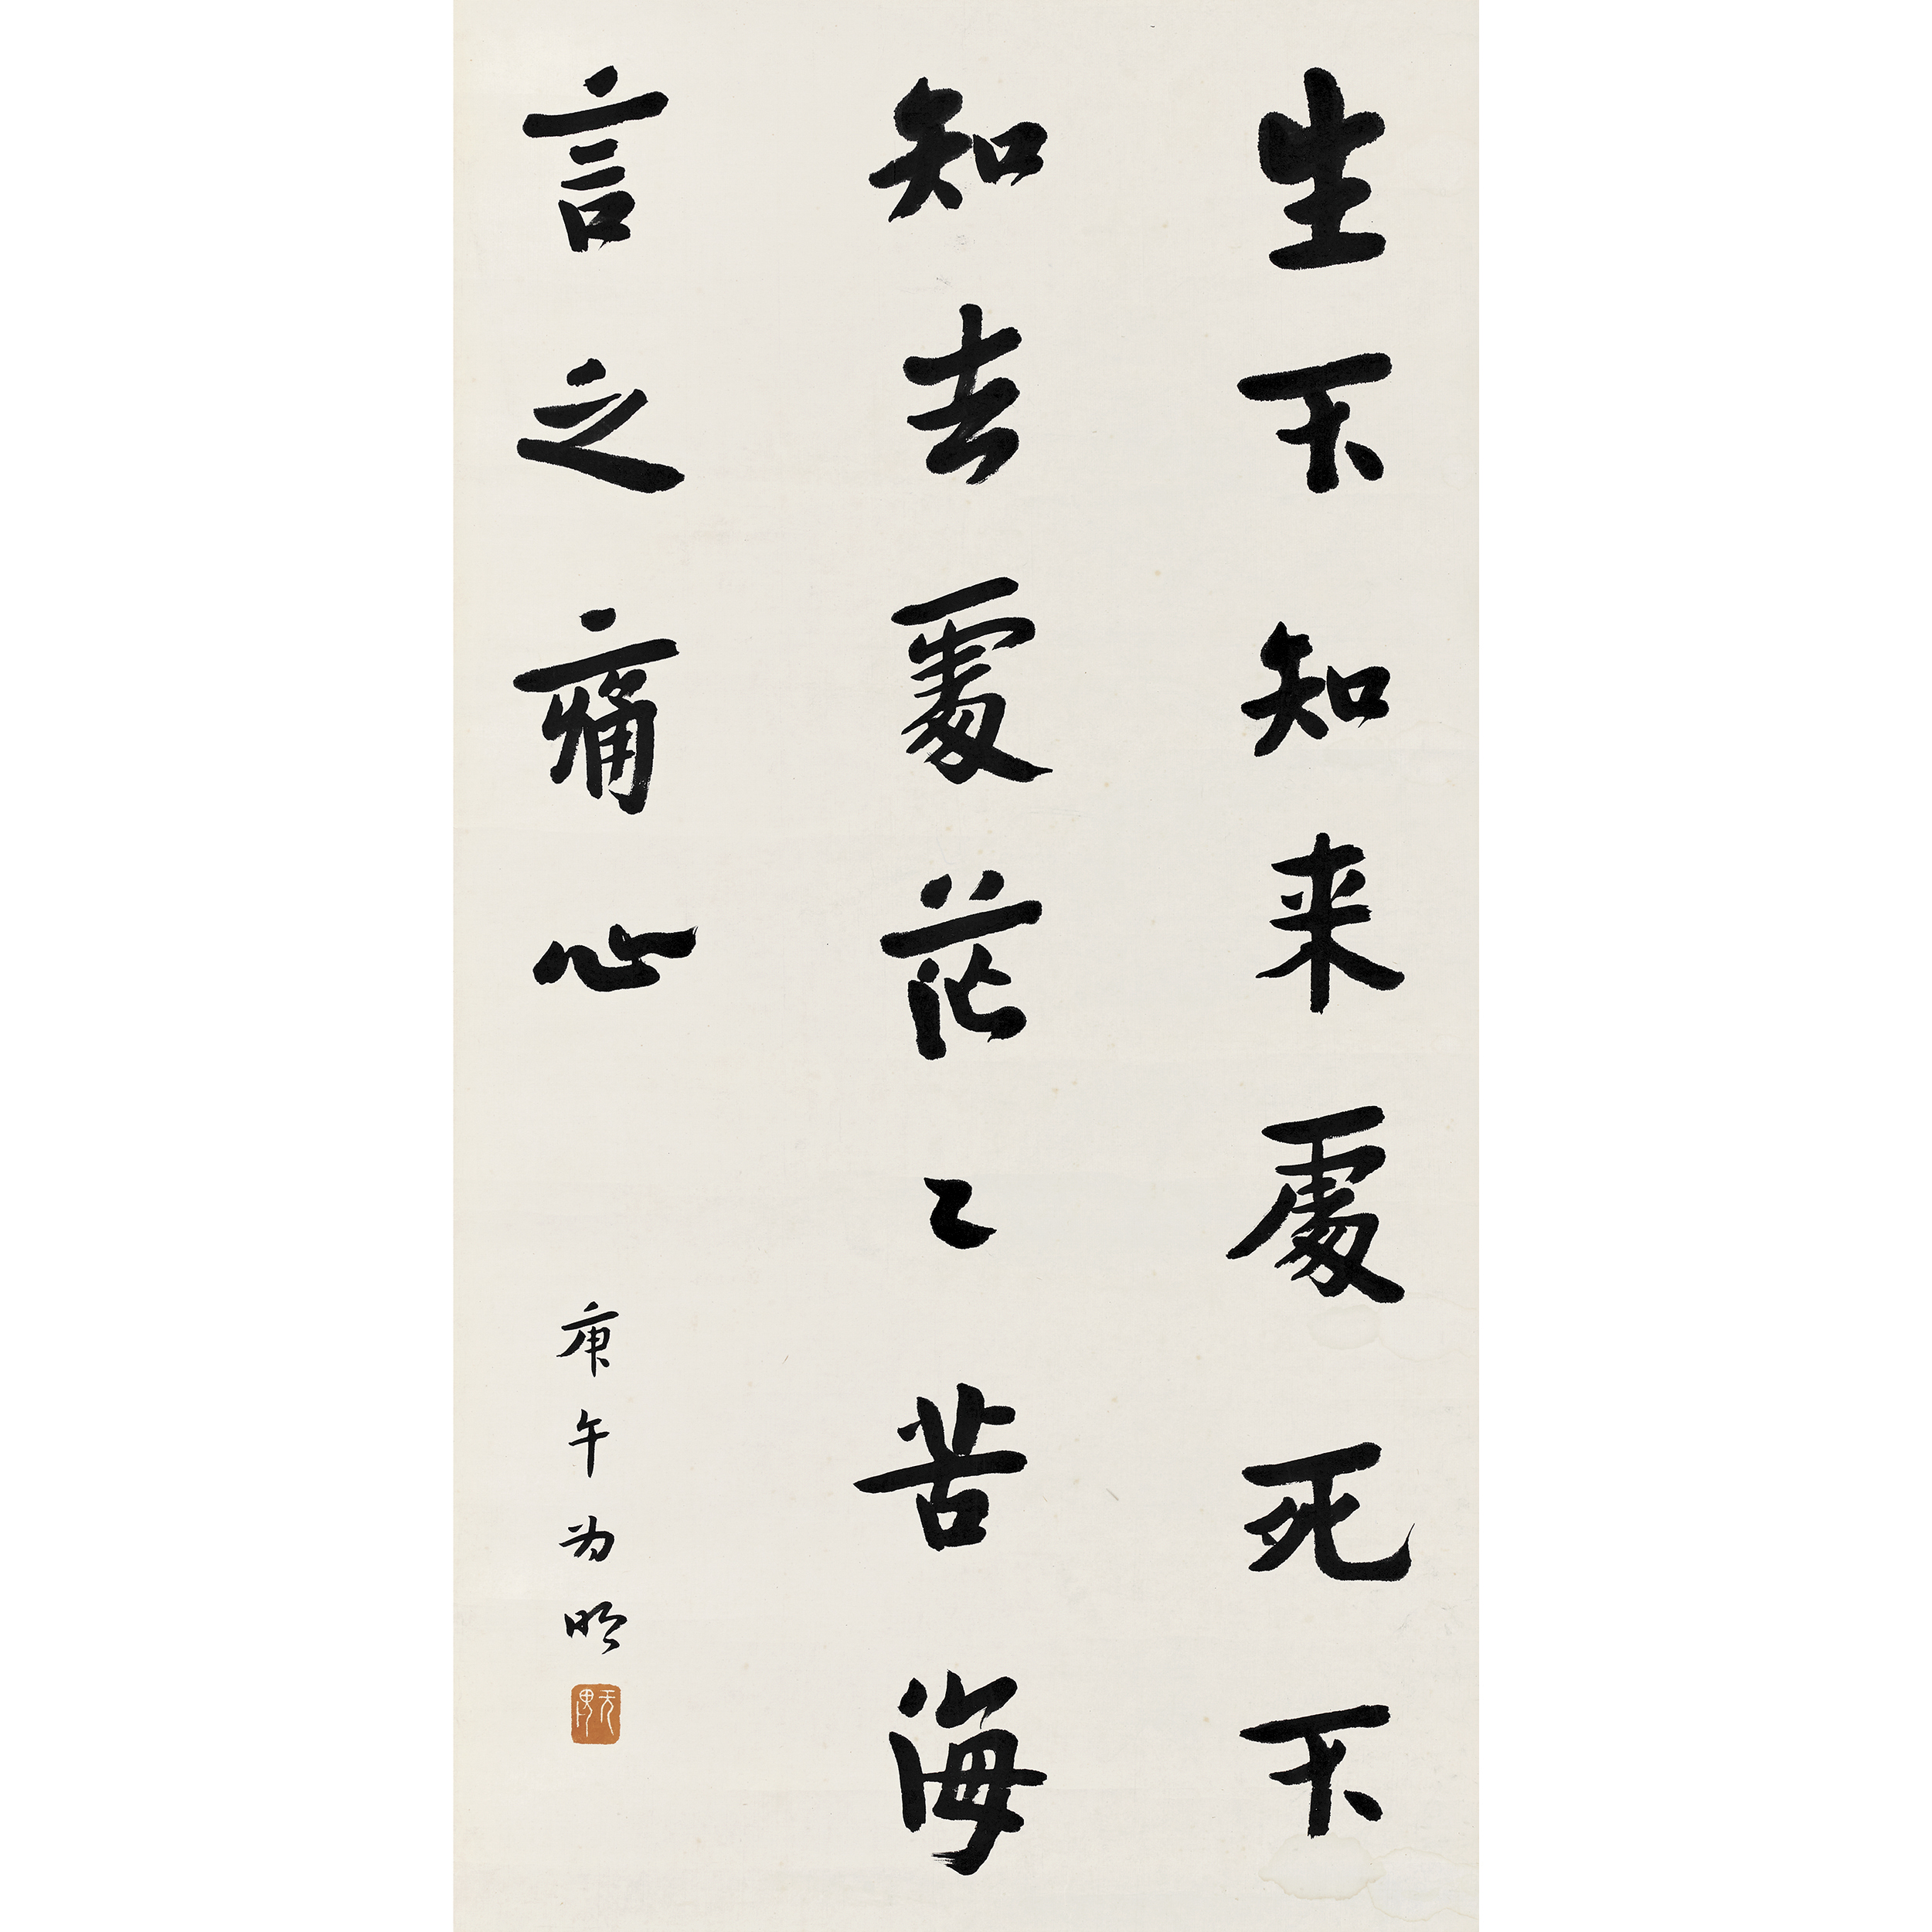 生不知来處死不
知去處茫〻苦海
言之痛心
庚午为明